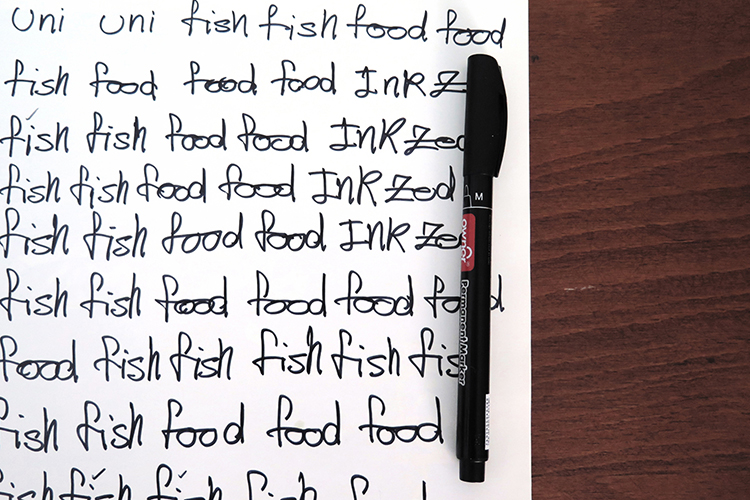 uni uni fish fish food food
fish food food food InR Z
fish fish food food InR Zed
fish fish food food InR Zed
fish fish food food InR Zed
fish fish food food food food
food fish fish fish fish fis
fish fish food food food
fish fish fish fish food
M
owner
Permanent Marker